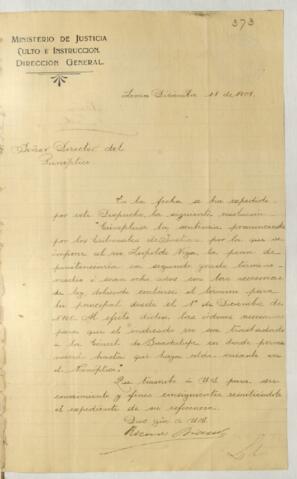 373
MINISTERIO DE JUSTICIA
CULTO E INSTRUCCION.
DIRECCIÓN GENERAL.
Lima Diciembre 18 de
Señor Director del
Panóptico
En la fecha se ha expedido
por este Despacho la siguiente resolución:
"Cúmplase la sentencia pronunciada
por los tribunales de Justicia por la que se
impone al reo Leopoldo Vega la pena de
penitenciaría en segundo grado término
medio ó sean ocho años con las accesorias
de ley debiendo contarse el término para
la principal desde el 1º de Diciembre de
Al efecto díctese las órdenes necesarias
para que el indicado reo sea trasladado
á la Cárcel de Guadalupe en donde perma
necerá hasta que haya celda vacante en
el Panóptico."
Que trascribo á US. para su
conocimiento y fines consiguientes remitiéndole
el expediente de su referencia.
Dios gũe á US.
Ricardo